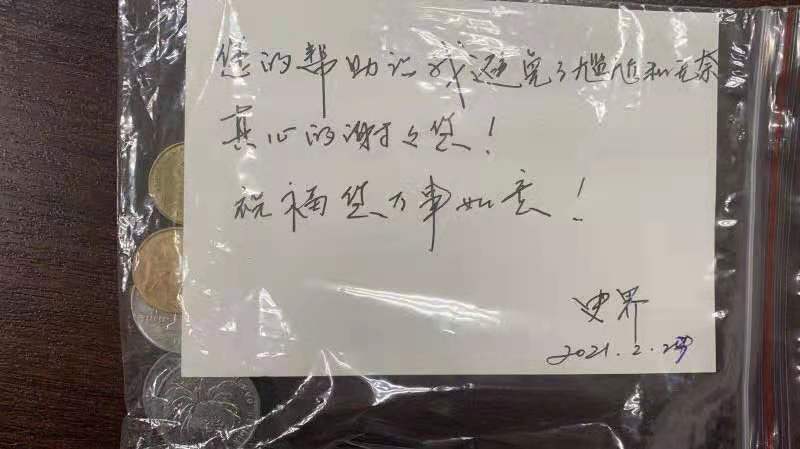 您的帮助让我避免了尴尬和无奈
真心的谢谢您!
祝福您万事如意!
史界
2021.2.